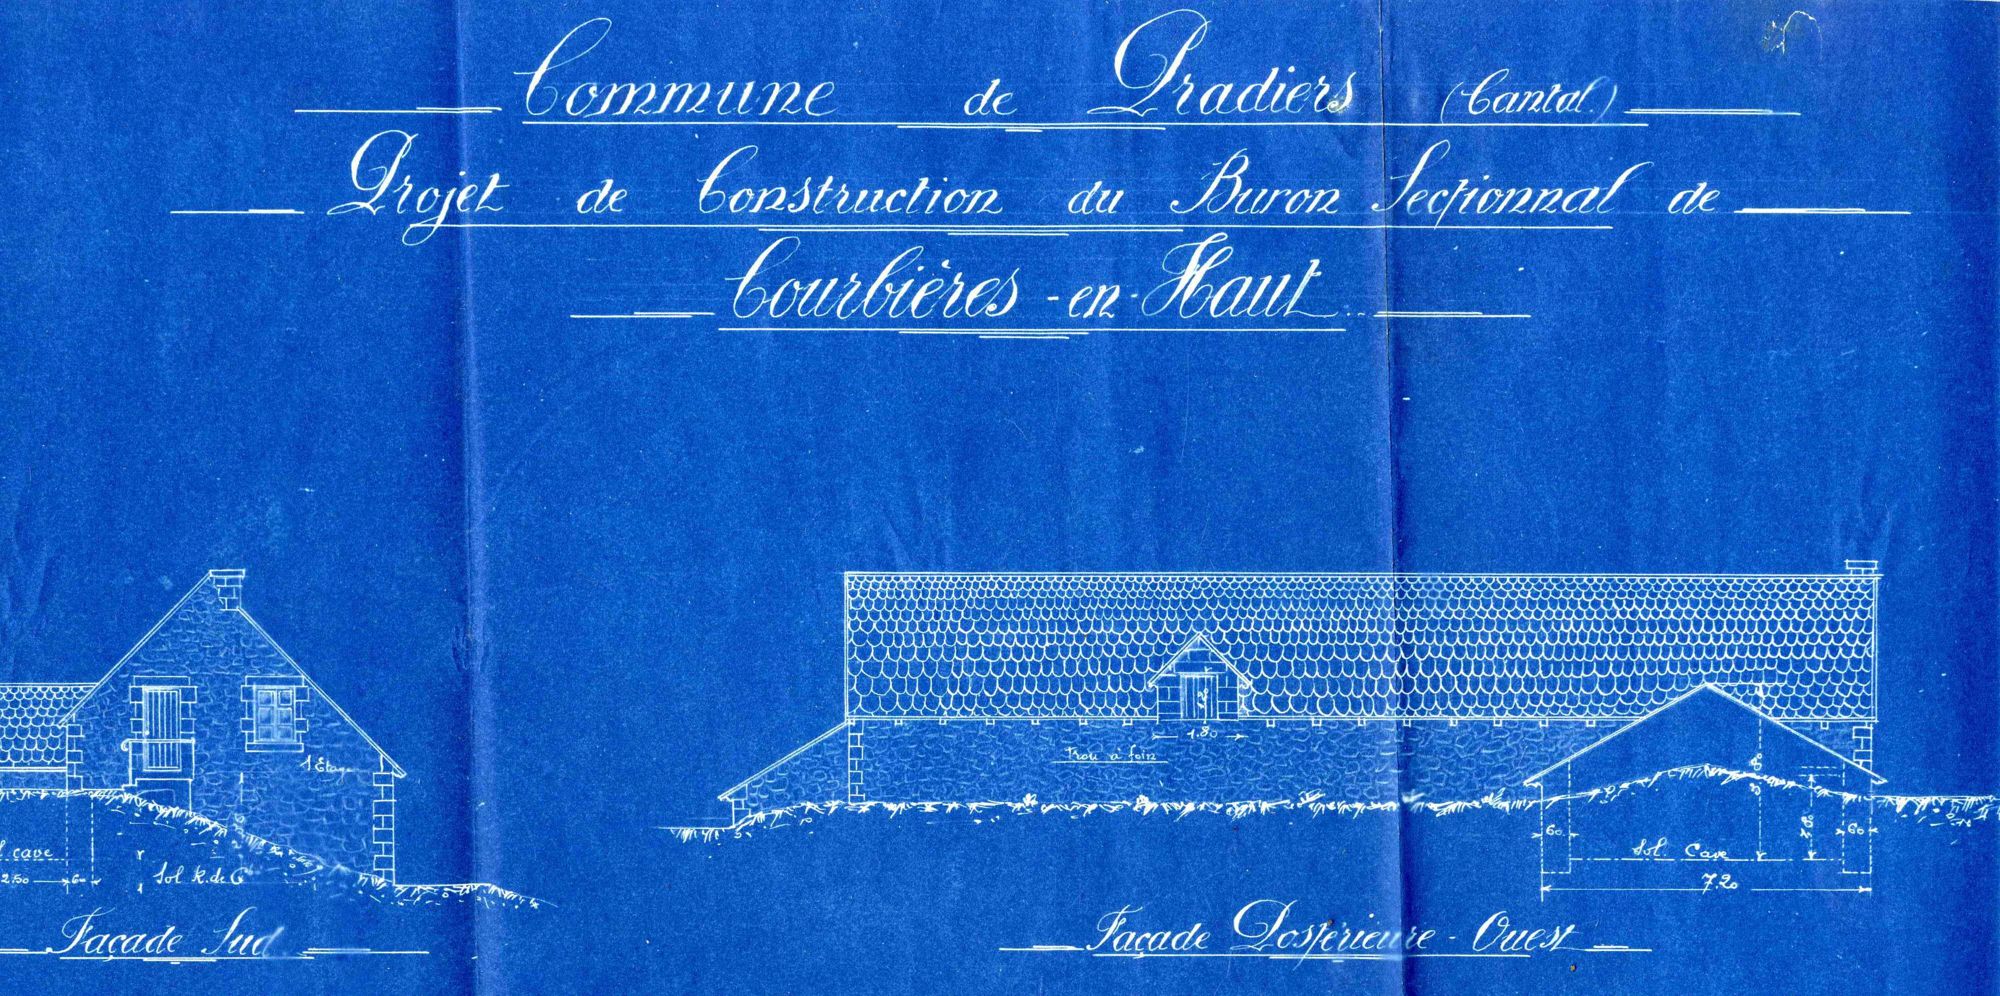 Commune de Pradiers (Cantal.)
Projet de Construction du Buron Sectionnal de
Courbières-en-Haut
1 Etage
l. cave
2.50 60
Sol R. de C
Façade Sud
1.80
Trou à foin
60 60
Sol. Cave
7.20
Façade Postérieure - Ouest